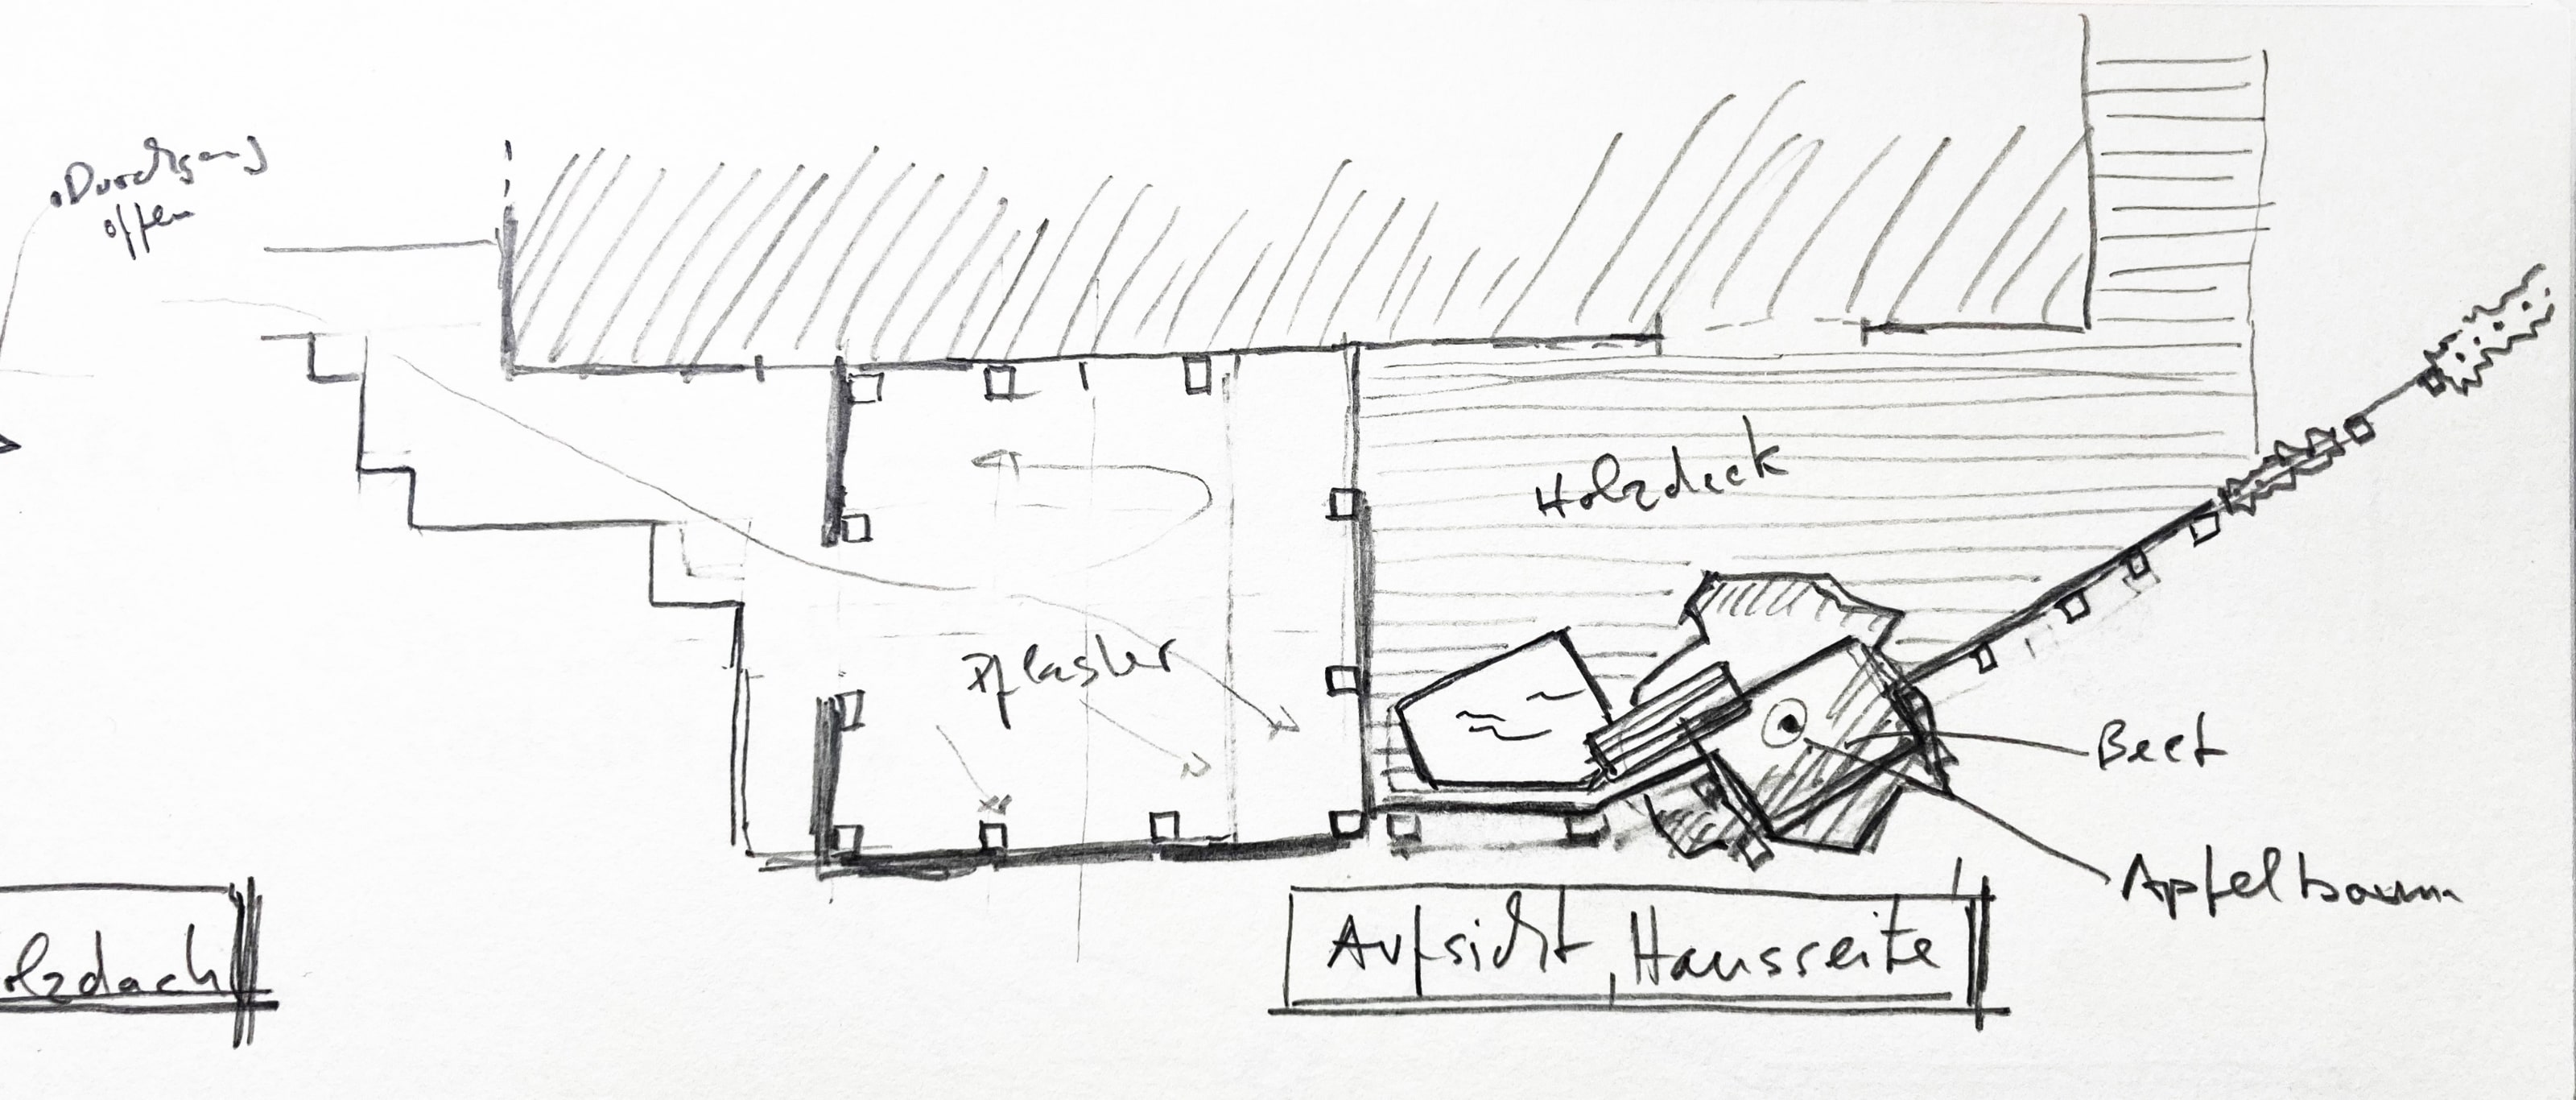 Durchgang
offen
Holzdeck
Pflaster
Beet
Apfelbaum
olzdach
Aufsicht, Hausseite